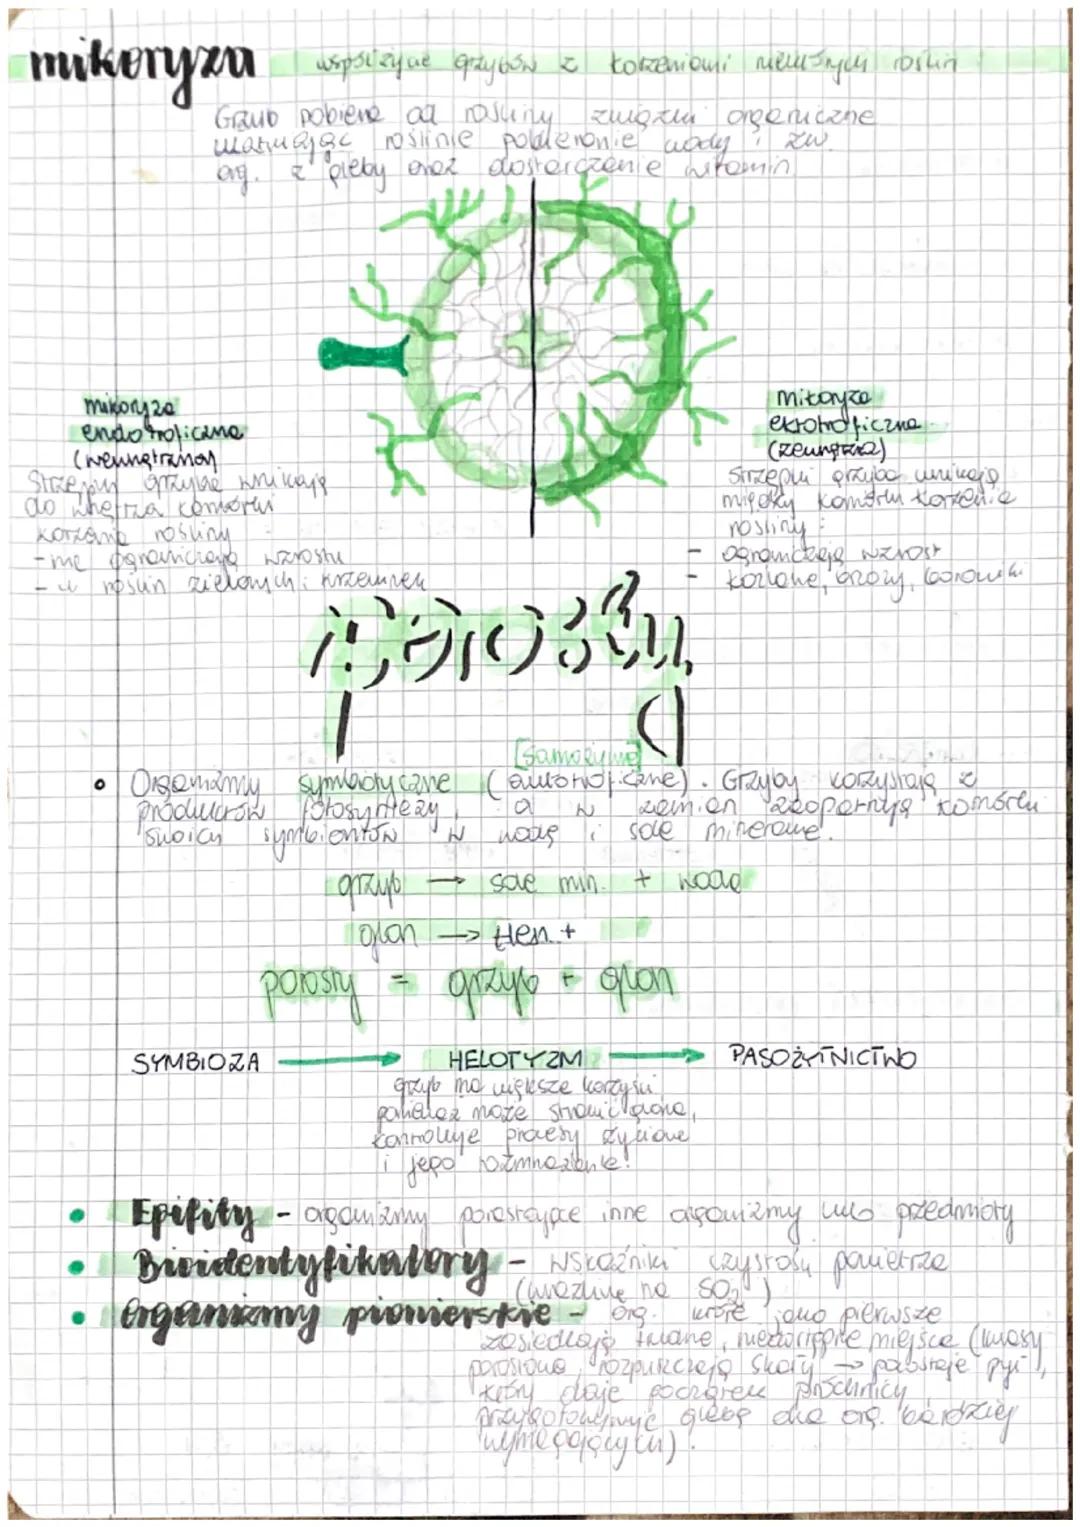 mikoryza
współżycie grzybów z korzeniami niektórych roślin
Grzyb pobiera od rośliny związki organiczne
ułatwiając roślinie pobieranie wody i zw.
org. z gleby oraz dostarczanie witamin
mikoryza
endotroficzna
(wewnętrzna)
Strzępki grzyba wnikają
do wnętrza komórki
korzenia rośliny
- nie ograniczają wzrostu
- u roślin zielonych i krzewinek
mikoryza
ektotroficzna
(zewnętrzna)
Strzępki grzyba wnikają
między komórki korzenia
rośliny:
- ograniczają wzrost
- brzozy, borowiki
[samożywne]
• Organizmy symbiotyczne (autotroficzne). Grzyby korzystają z
produktów fotosyntezy, a w zamian zaopatrują komórki
swoich symbiontów w wodę i sole mineralne.
grzyb → sole min. + woda
glon → tlen +
porosty = grzyb + glon
SYMBIOZA → HELOTYZM → PASOŻYTNICTWO
grzyb ma większe korzyści
ponieważ może glona,
kontroluje procesy życiowe
i jego rozmnażanie!
• Epifity - organizmy porastające inne organizmy lub przedmioty
• Bioidentyfikatory - wskaźniki czystości powietrza
(wrażliwe na SO₂)
• Organizmy pionierskie - org. które jako pierwsze
zasiedlają miejsca (kwasy
porostowe rozpuszczają skały → powstaje pył,
który daje początek próchnicy
glebę dla org. bardziej
wymagających).